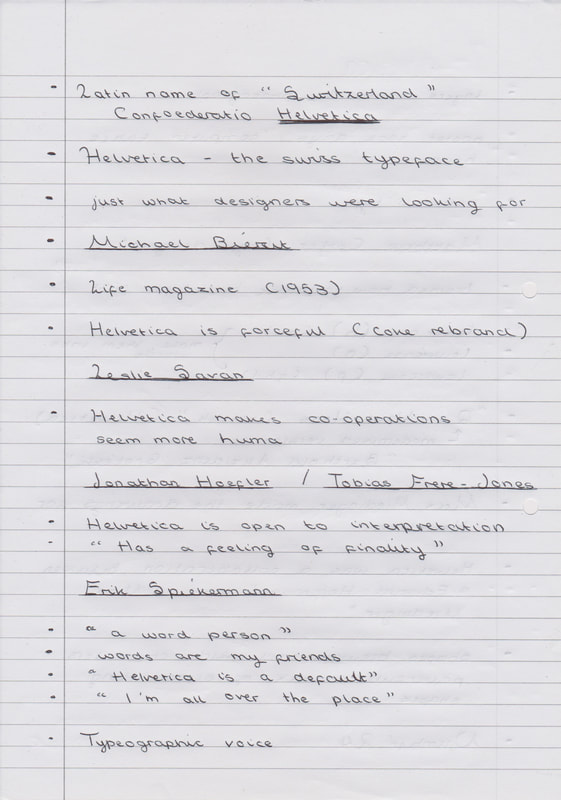 • Latin name of "Switzerland"
Confoederatio Helvetica
• Helvetica - the swiss typeface
• just what designers were looking for
• Michael Bierut
• Life magazine (1953)
• Helvetica is forceful (coke rebrand)
Leslie Savan
• Helvetica makes co-operations
seem more huma
Jonathan Hoefler / Tobias Frere-Jones
• Helvetica is open to interpretation
- "Has a feeling of finality"
Erik Spiekermann
• "a word person"
• words are my friends
• "Helvetica is a default"
• "I'm all over the place"
• Typeographic voice